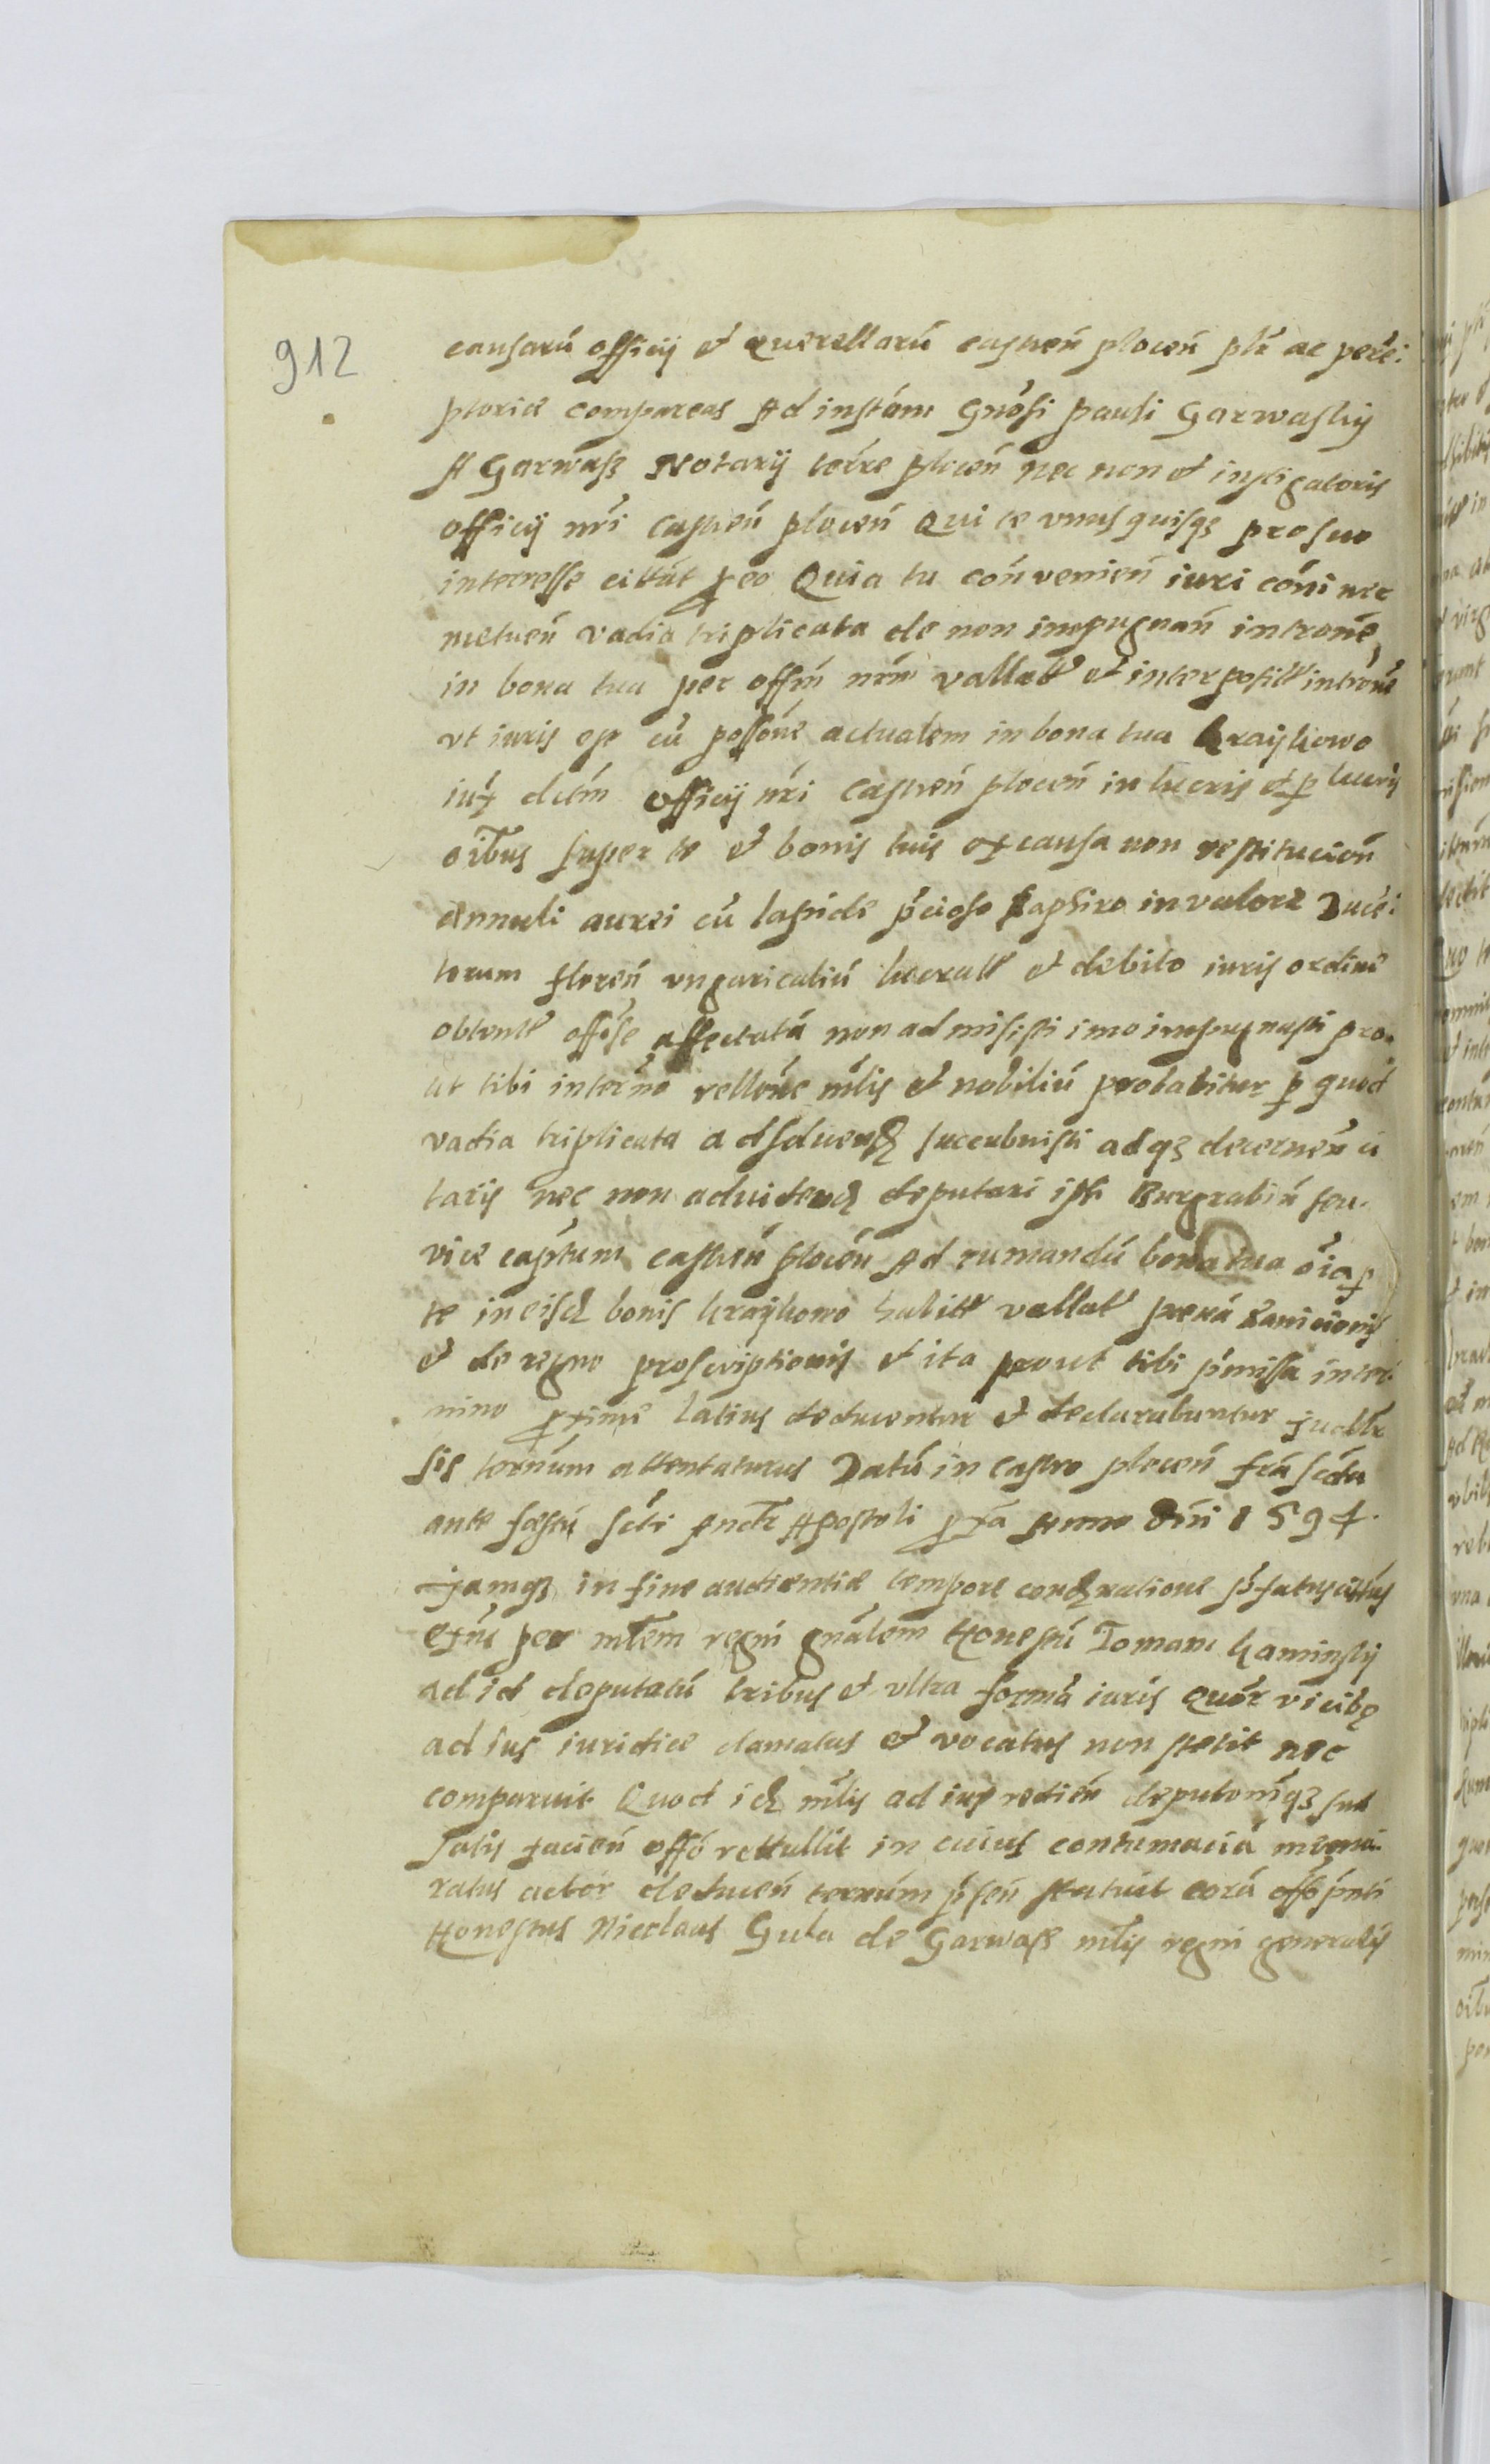 912
causarū officij et querellarū castreń ploceń plr ac perē:
ptorie compareas Ad instām Gnōsi pauli Garwaskij
A Garwasz Notarij terre ploceń nec non et instigatoris
officij nri castreń ploceń Qui te vnus quisqz pro suo
interesse cittāt p eo Quia tu cōn venień iuri cōni nec
metueń vadia triplicata de non impugnań intronē
in bona tua per offm nrm vallatt et interpositt introne
vt iuris ee cū possone actualem in bona tua Kraijkowo
iux dctm officij nri castreń ploceń in lucris et p lucris
oibus super te et bonis tuis ex causa non restitucioń
Annuli aurei cū lapide pcioso saphiro in valore Ducē:
torum floreń vngaricaliū lucratt et debito iuris ordine
obtentt offose affectatā non admisisti imo impugnasti pro.
ut tibi in termo rellone mlis et nobiliū probabitur p quod
vadia triplicata adsolvend succubuisti ad qz decerneń ci
taris nec non ad videnđ deputari iph Burgrabiū seu.
vice capitum castreń ploceń Ad rumandū bona tua oia p
te in eisđ bonis kraijkowo habitt vallatt pena banicionis
et de regno proscriptionis et ita prout tibi pmissa in ter.
mino pxime latius deducentur et declarabuntur judlr
sis termum attentaturus Datū in castro ploceń fria scđa
ante festū scti Andr Apostoli pxa Anno Dni 1594.
jamqz in fine audientie tempore condrationis pfatus cittus
exūs per mlem regni gnālem Honestū Tomam kaminskij
ad id deputatū tribus et vltra formā iuris quor vicibz
ad ius iuridice clamatus et vocatus non stetit nec
comparuit Quod iđ mlis ad ius redień deputoniqz sue
satis facień offo rettullit in cuius contumaciā
ratus actor deducen termum pseń statuit corā offo pnti
Honestus Nicolaus Gula de Garwasz mlis regni generalis